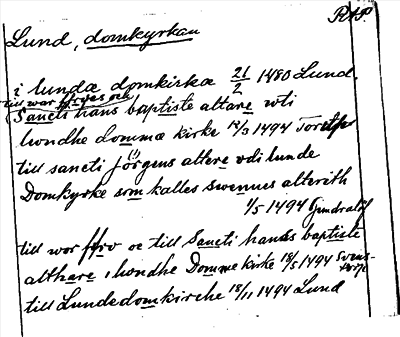 Lund, domkyrkan
i lundæ domkirkæ 21/2 1480 Lund.
till war
Sancti hans baptiste altare uti
londhe domme kirke 12/3 1494
till sancti jörgens altere udi lunde
Domkyrke som kalles swennes alterith
1/5 1494
till wor oc till Sancti hanss baptiste
althare i londhe Domme kirke 18/5 1494
till Lundedomkirche 18/11 1494 Lund